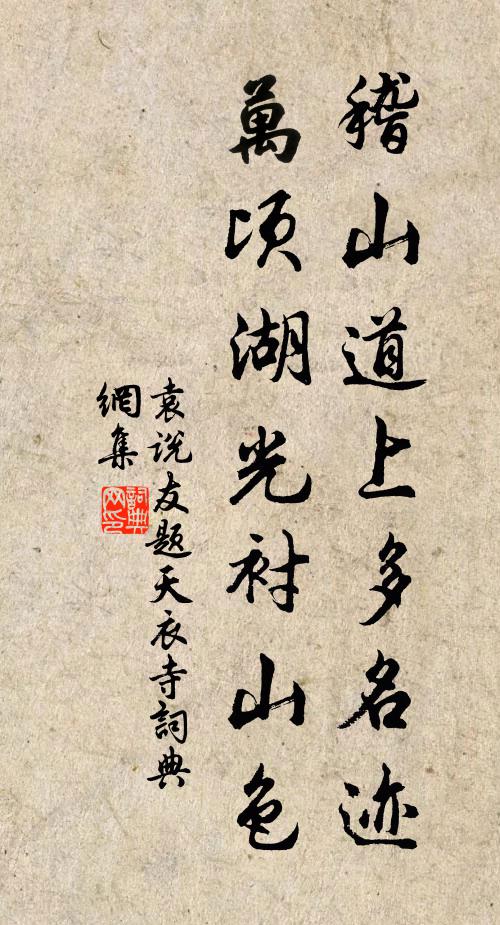 稽山道上多名迹
萬頃湖光衬山色
袁説友題天衣寺詞典
網集
詞典
网印